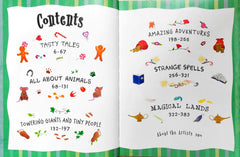 Contents
TASTY TALES
6-67
ALL ABOUT ANIMALS
68-131
TOWERING GIANTS AND TINY PEOPLE
132-197
AMAZING ADVENTURES
198-265
STRANGE SPELLS
266-321
MAGICAL LANDS
322-383
About the Artists